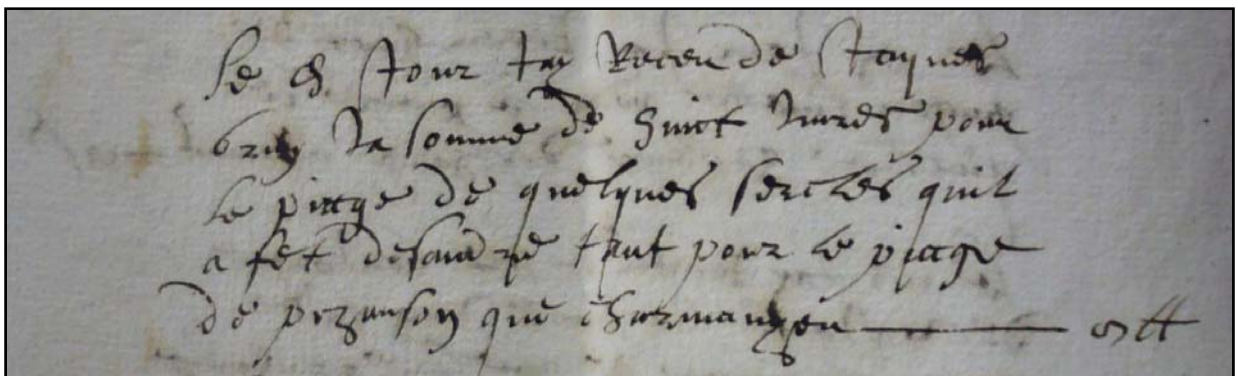 Le d. Jour Jay Receu de Jaques
bruy la somme de huict livres pour
le peage de quelques sercles quil
a fet desandre tant pour le peage
de pizanson que charmanyeu 8 ₶